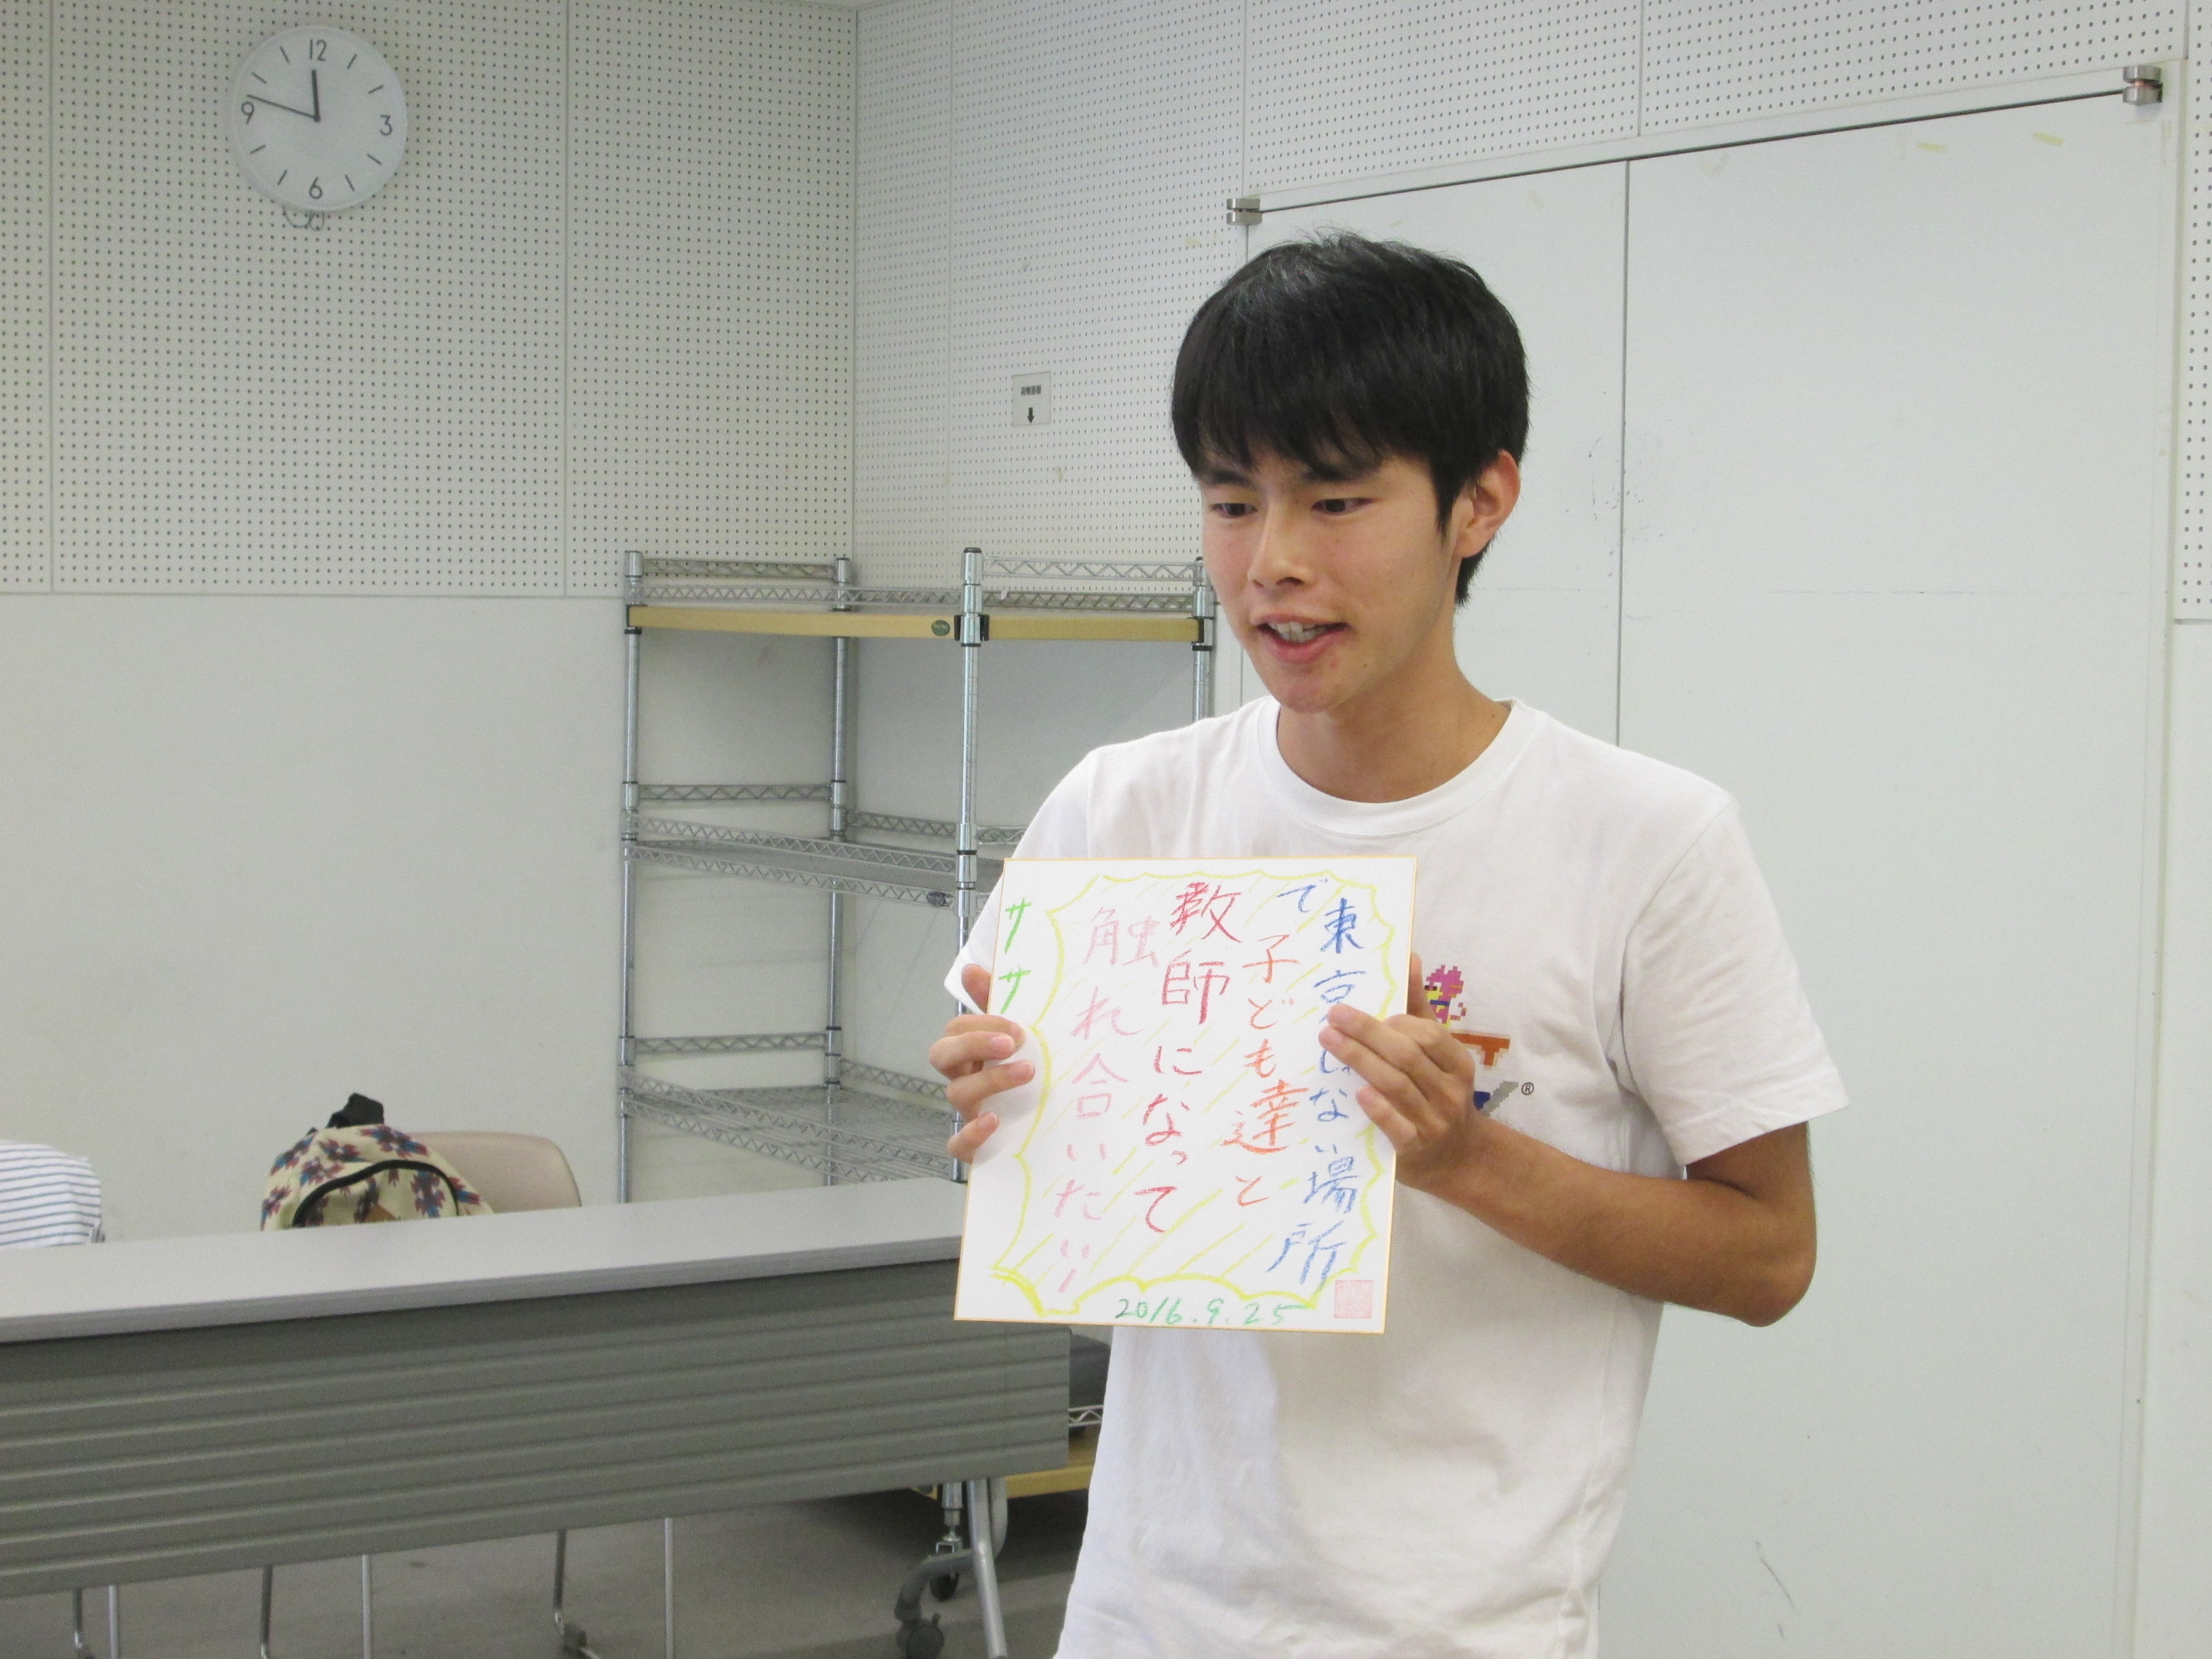 東京じゃない場所
で子ども達と
教師になって
触れ合いたい!
ササ
2016.9.25
12
3
6
9
®